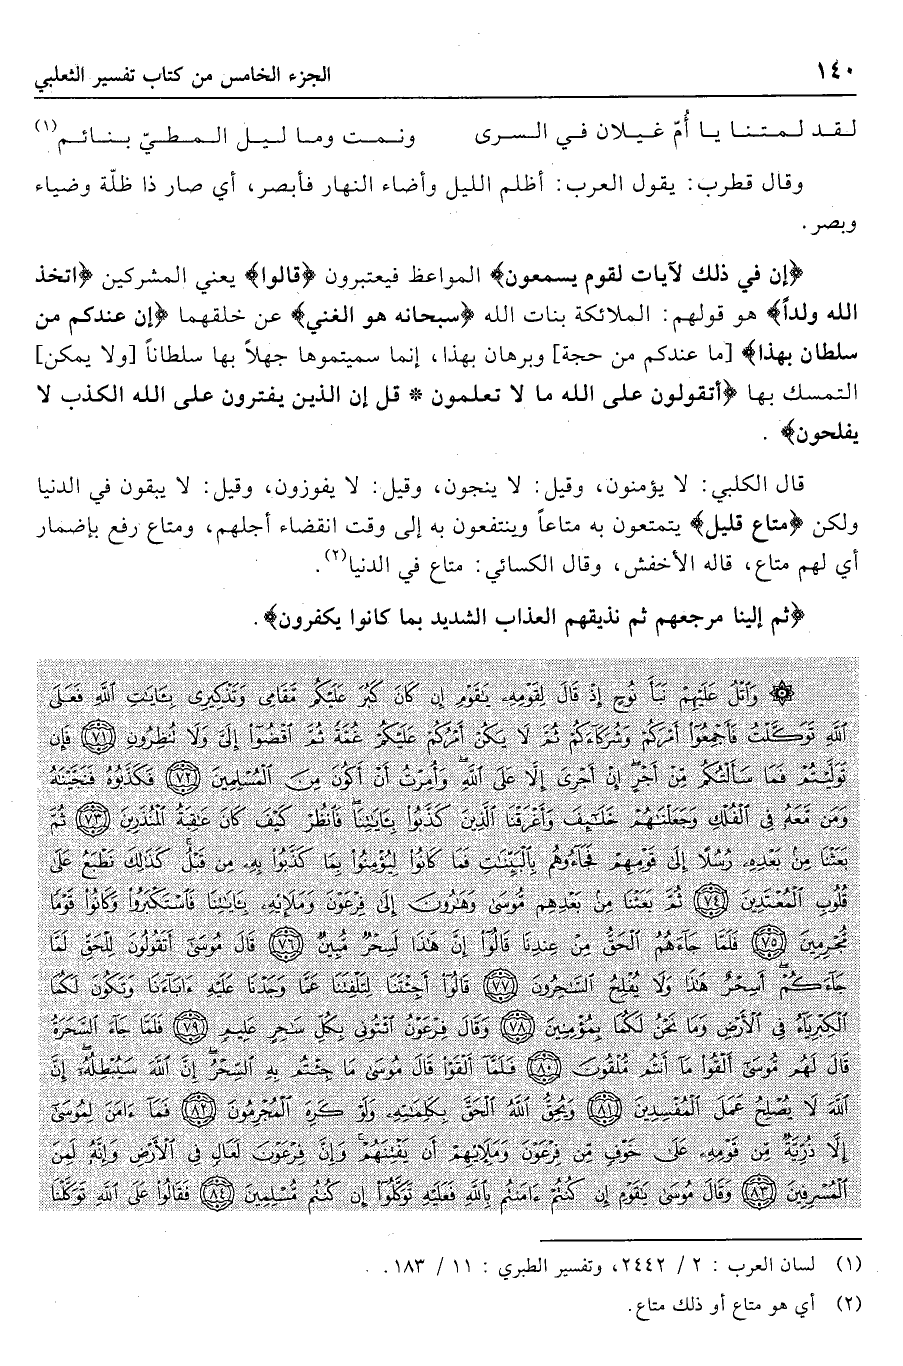 ١٤٠ الجزء الخامس من كتاب تفسير الثعلبي
لقد لمتنا يا أُمّ غيلان في السرى ونمت وما ليل المطيّ بنائم(١)
وقال قطرب: يقول العرب: أظلم الليل وأضاء النهار فأبصر، أي صار ذا ظلّة وضياء
وبصر.
﴿إن في ذلك لآيات لقوم يسمعون﴾ المواعظ فيعتبرون ﴿قالوا﴾ يعني المشركين ﴿اتخذ
الله ولداً﴾ هو قولهم: الملائكة بنات الله ﴿سبحانه هو الغني﴾ عن خلقهما ﴿إن عندكم من
سلطان بهذا﴾ [ما عندكم من حجة] وبرهان بهذا، إنما سميتموها جهلاً بها سلطاناً [ولا يمكن]
التمسك بها ﴿أتقولون على الله ما لا تعلمون * قل إن الذين يفترون على الله الكذب لا
يفلحون﴾ .
قال الكلبي: لا يؤمنون، وقيل: لا ينجون، وقيل: لا يفوزون، وقيل: لا يبقون في الدنيا
ولكن ﴿متاع قليل﴾ يتمتعون به متاعاً وينتفعون به إلى وقت انقضاء أجلهم، ومتاع رفع بإضمار
أي لهم متاع، قاله الأخفش، وقال الكسائي: متاع في الدنيا(٢).
﴿ثم إلينا مرجعهم ثم نذيقهم العذاب الشديد بما كانوا يكفرون﴾.
۞ وَٱتْلُ عَلَيْهِمْ نَبَأَ نُوحٍ إِذْ قَالَ لِقَوْمِهِۦ يَٰقَوْمِ إِن كَانَ كَبُرَ عَلَيْكُم مَّقَامِى وَتَذْكِيرِى بِـَٔايَٰتِ ٱللَّهِ فَعَلَى
ٱللَّهِ تَوَكَّلْتُ فَأَجْمِعُوٓا۟ أَمْرَكُمْ وَشُرَكَآءَكُمْ ثُمَّ لَا يَكُنْ أَمْرُكُمْ عَلَيْكُمْ غُمَّةً ثُمَّ ٱقْضُوٓا۟ إِلَىَّ وَلَا تُنظِرُونِ ٧١ فَإِن
تَوَلَّيْتُمْ فَمَا سَأَلْتُكُم مِّنْ أَجْرٍ ۖ إِنْ أَجْرِىَ إِلَّا عَلَى ٱللَّهِ ۖ وَأُمِرْتُ أَنْ أَكُونَ مِنَ ٱلْمُسْلِمِينَ ٧٢ فَكَذَّبُوهُ فَنَجَّيْنَٰهُ
وَمَن مَّعَهُۥ فِى ٱلْفُلْكِ وَجَعَلْنَٰهُمْ خَلَٰٓئِفَ وَأَغْرَقْنَا ٱلَّذِينَ كَذَّبُوا۟ بِـَٔايَٰتِنَا ۖ فَٱنظُرْ كَيْفَ كَانَ عَٰقِبَةُ ٱلْمُنذَرِينَ ٧٣ ثُمَّ
بَعَثْنَا مِنۢ بَعْدِهِۦ رُسُلًا إِلَىٰ قَوْمِهِمْ فَجَآءُوهُم بِٱلْبَيِّنَٰتِ فَمَا كَانُوا۟ لِيُؤْمِنُوا۟ بِمَا كَذَّبُوا۟ بِهِۦ مِن قَبْلُ ۚ كَذَٰلِكَ نَطْبَعُ عَلَىٰ
قُلُوبِ ٱلْمُعْتَدِينَ ٧٤ ثُمَّ بَعَثْنَا مِنۢ بَعْدِهِم مُّوسَىٰ وَهَٰرُونَ إِلَىٰ فِرْعَوْنَ وَمَلَإِي۟هِۦ بِـَٔايَٰتِنَا فَٱسْتَكْبَرُوا۟ وَكَانُوا۟ قَوْمًا
مُّجْرِمِينَ ٧٥ فَلَمَّا جَآءَهُمُ ٱلْحَقُّ مِنْ عِندِنَا قَالُوٓا۟ إِنَّ هَٰذَا لَسِحْرٌ مُّبِينٌ ٧٦ قَالَ مُوسَىٰٓ أَتَقُولُونَ لِلْحَقِّ لَمَّا
جَآءَكُمْ ۖ أَسِحْرٌ هَٰذَا وَلَا يُفْلِحُ ٱلسَّٰحِرُونَ ٧٧ قَالُوٓا۟ أَجِئْتَنَا لِتَلْفِتَنَا عَمَّا وَجَدْنَا عَلَيْهِ ءَابَآءَنَا وَتَكُونَ لَكُمَا
ٱلْكِبْرِيَآءُ فِى ٱلْأَرْضِ وَمَا نَحْنُ لَكُمَا بِمُؤْمِنِينَ ٧٨ وَقَالَ فِرْعَوْنُ ٱئْتُونِى بِكُلِّ سَٰحِرٍ عَلِيمٍ ٧٩ فَلَمَّا جَآءَ ٱلسَّحَرَةُ
قَالَ لَهُم مُّوسَىٰٓ أَلْقُوا۟ مَآ أَنتُم مُّلْقُونَ ٨٠ فَلَمَّآ أَلْقَوْا۟ قَالَ مُوسَىٰ مَا جِئْتُم بِهِ ٱلسِّحْرُ ۖ إِنَّ ٱللَّهَ سَيُبْطِلُهُۥٓ ۖ إِنَّ
ٱللَّهَ لَا يُصْلِحُ عَمَلَ ٱلْمُفْسِدِينَ ٨١ وَيُحِقُّ ٱللَّهُ ٱلْحَقَّ بِكَلِمَٰتِهِۦ وَلَوْ كَرِهَ ٱلْمُجْرِمُونَ ٨٢ فَمَآ ءَامَنَ لِمُوسَىٰٓ
إِلَّا ذُرِّيَّةٌ مِّن قَوْمِهِۦ عَلَىٰ خَوْفٍ مِّن فِرْعَوْنَ وَمَلَإِي۟هِمْ أَن يَفْتِنَهُمْ ۚ وَإِنَّ فِرْعَوْنَ لَعَالٍ فِى ٱلْأَرْضِ وَإِنَّهُۥ لَمِنَ
ٱلْمُسْرِفِينَ ٨٣ وَقَالَ مُوسَىٰ يَٰقَوْمِ إِن كُنتُمْ ءَامَنتُم بِٱللَّهِ فَعَلَيْهِ تَوَكَّلُوٓا۟ إِن كُنتُم مُّسْلِمِينَ ٨٤ فَقَالُوا۟ عَلَى ٱللَّهِ تَوَكَّلْنَا
(١) لسان العرب : ٢ / ٢٤٤٢، وتفسير الطبري : ١١ / ١٨٣.
(٢) أي هو متاع أو ذلك متاع.